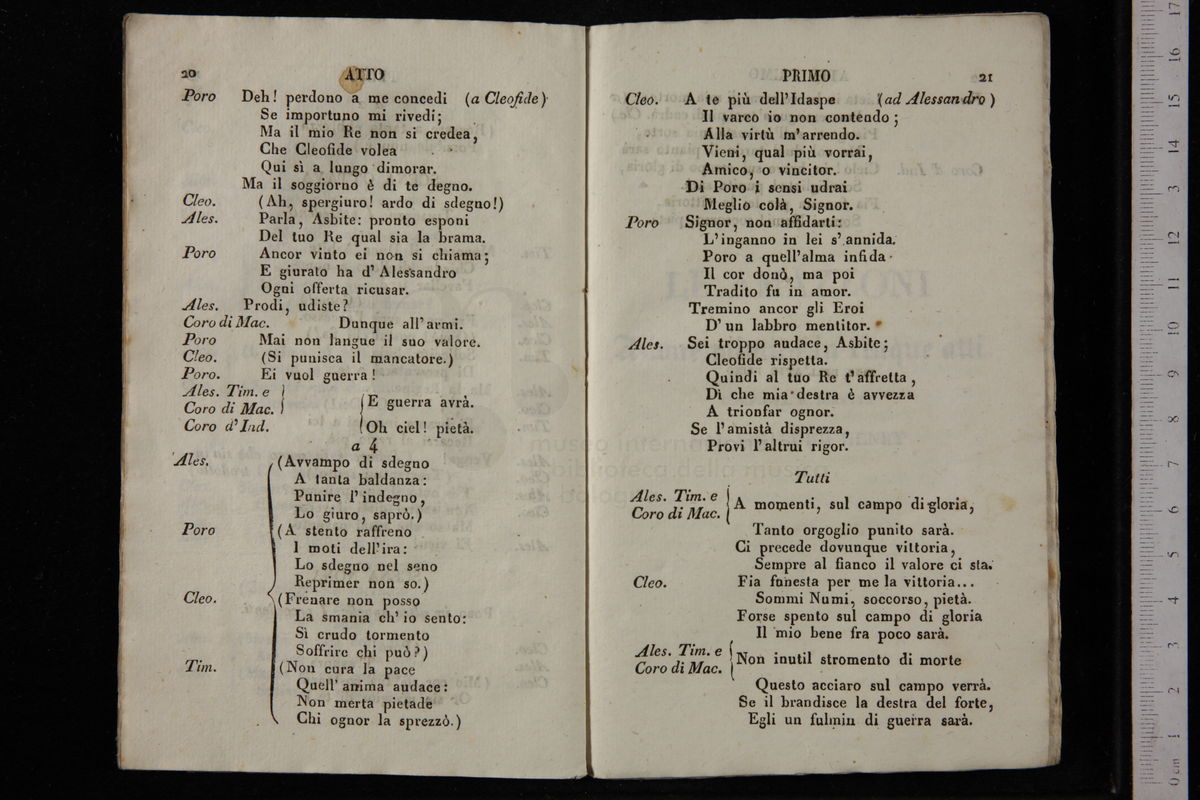 20 ATTO
Poro Deh! perdono a me concedi (a Cleofide)
Se importuno mi rivedi;
Ma il mio Re non si credea,
Che Cleofide volea
Qui sì a lungo dimorar.
Ma il soggiorno è di te degno.
Cleo. (Ah, spergiuro! ardo di sdegno!)
Ales. Parla, Asbite: pronto esponi
Del tuo Re qual sia la brama.
Poro Ancor vinto ei non si chiama;
E giurato ha d' Alessandro
Ogni offerta ricusar.
Ales. Prodi, udiste?
Coro di Mac. Dunque all' armi.
Poro Mai non langue il suo valore.
Cleo. (Si punisca il mancatore.)
Poro. Ei vuol guerra!
Ales. Tim. e
Coro di Mac. E guerra avrà.
Coro d' Ind. Oh ciel! pietà.
a 4
Ales. (Avvampo di sdegno
A tanta baldanza:
Punire l' indegno,
Lo giuro, saprò.)
Poro (A stento raffreno
I moti dell' ira:
Lo sdegno nel seno
Reprimer non so.)
Cleo. (Frenare non posso
La smania ch' io sento:
Sì crudo tormento
Soffrire chi può?)
Tim. (Non cura la pace
Quell' anima audace:
Non merta pietade
Chi ognor la sprezzò.)
PRIMO 21
Cleo. A te più dell' Idaspe (ad Alessandro)
Il varco io non contendo;
Alla virtù m' arrendo.
Vieni, qual più vorrai,
Amico, o vincitor.
Di Poro i sensi udrai
Meglio colà, Signor.
Poro Signor, non affidarti:
L' inganno in lei s' annida.
Poro a quell' alma infida
Il cor donò, ma poi
Tradito fu in amor.
Tremino ancor gli Eroi
D' un labbro mentitor.
Ales. Sei troppo audace, Asbite;
Cleofide rispetta.
Quindi al tuo Re t' affretta,
Dì che mia destra è avvezza
A trionfar ognor.
Se l' amistà disprezza,
Provi l' altrui rigor.
Tutti
Ales. Tim. e
Coro di Mac. A momenti, sul campo di gloria,
Tanto orgoglio punito sarà.
Ci precede dovunque vittoria,
Sempre al fianco il valore ci sta.
Cleo. Fia funesta per me la vittoria...
Sommi Numi, soccorso, pietà.
Forse spento sul campo di gloria
Il mio bene fra poco sarà.
Ales. Tim. e
Coro di Mac. Non inutil stromento di morte
Questo acciaro sul campo verrà.
Se il brandisce la destra del forte,
Egli un fulmin di guerra sarà.
museo internazionale
biblioteca della musica
Bologna
0 cm 1 2 3 4 5 6 7 8 9 10 11 12 13 14 15 16 17